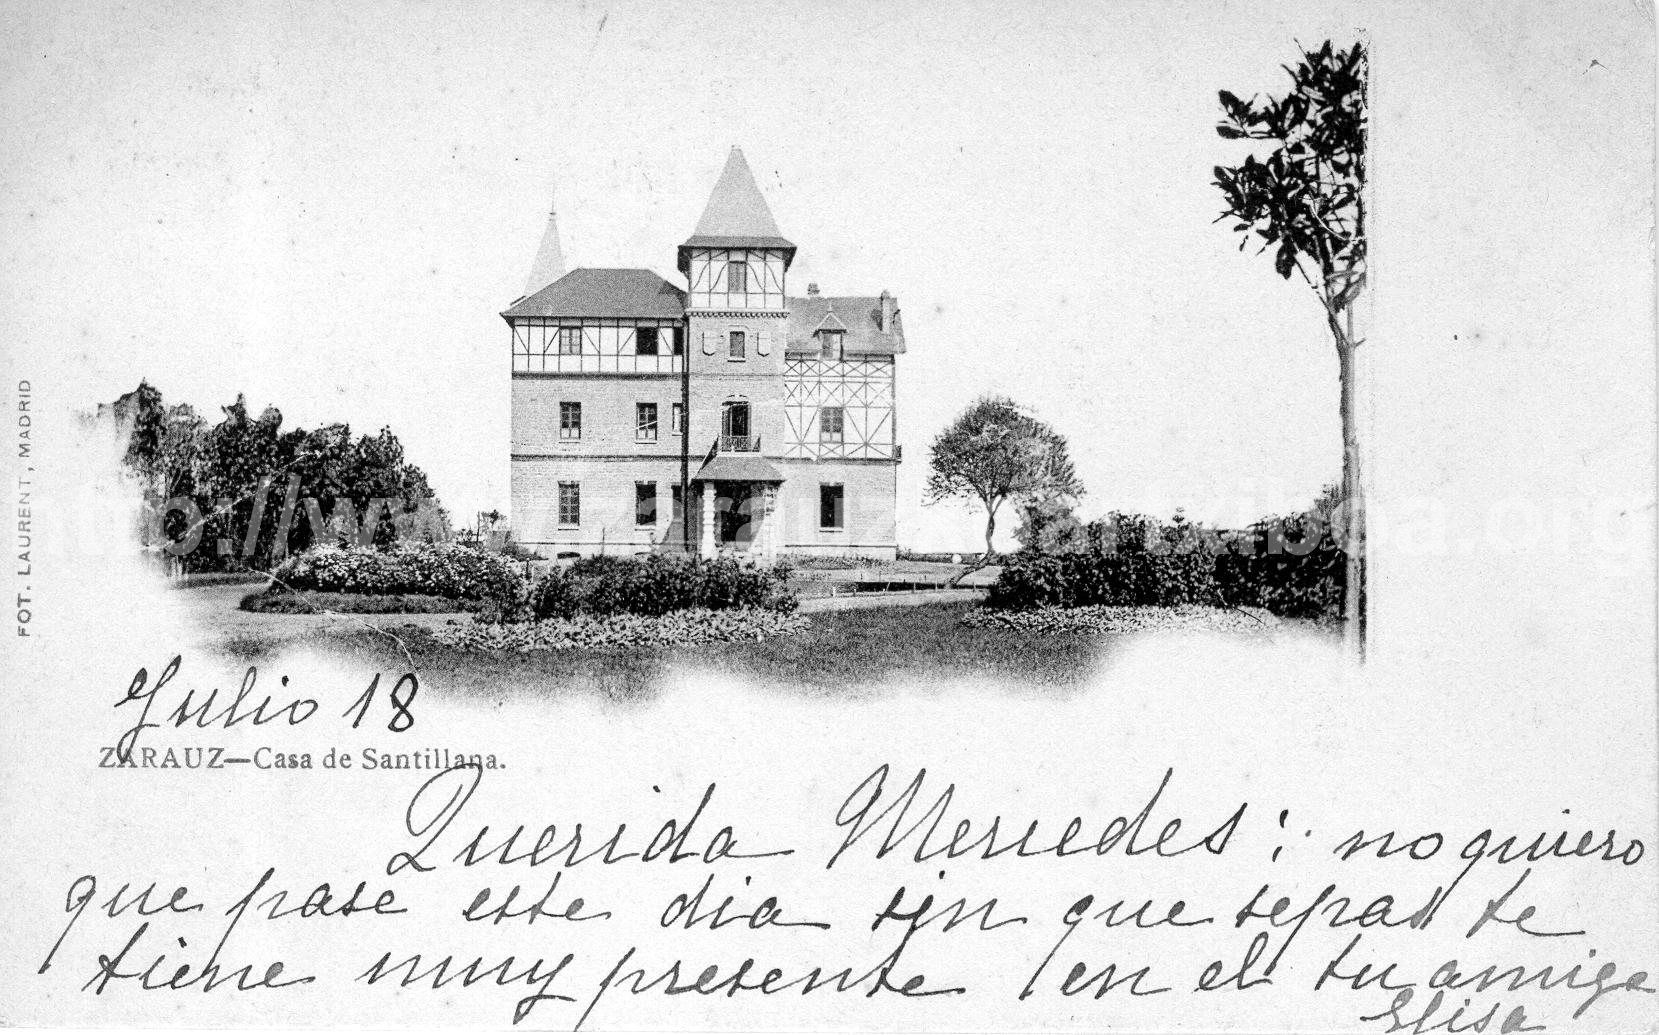 FOT. LAURENT, MADRID
Julio 18
ZARAUZ—Casa de Santillana.
Querida Mercedes: no quiero
que pase este dia sin que sepas te
tiene muy presente en el tu amiga
Elisa